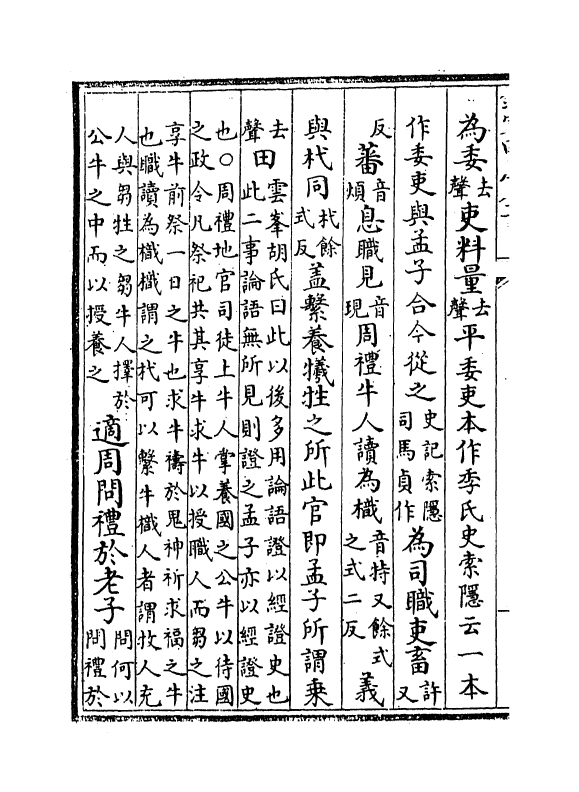 為委去聲吏料量去聲平委吏本作季氏史索隱云一本
作委吏與孟子合今從之史記索隱司馬貞作為司職吏畜許又
反蕃音煩息職見音現周禮牛人讀為樴音特又餘式之式二反義
與杙同杙餘式反蓋繫養犧牲之所此官即孟子所謂乘
去聲田雲峯胡氏曰此以後多用論語證以經證史也
此二事論語無所見則證之孟子亦以經證史
也○周禮地官司徒上牛人掌養國之公牛以待國
之政令凡祭祀共其享牛求牛以授職人而芻之注
享牛前祭一日之牛也求牛禱於鬼神祈求福之牛
也職讀為樴樴謂之杙可以繫牛樴人者謂牧人充
人與芻牲之芻牛人擇於
公牛之中而以授養之
適周問禮於老子問何以
問禮於